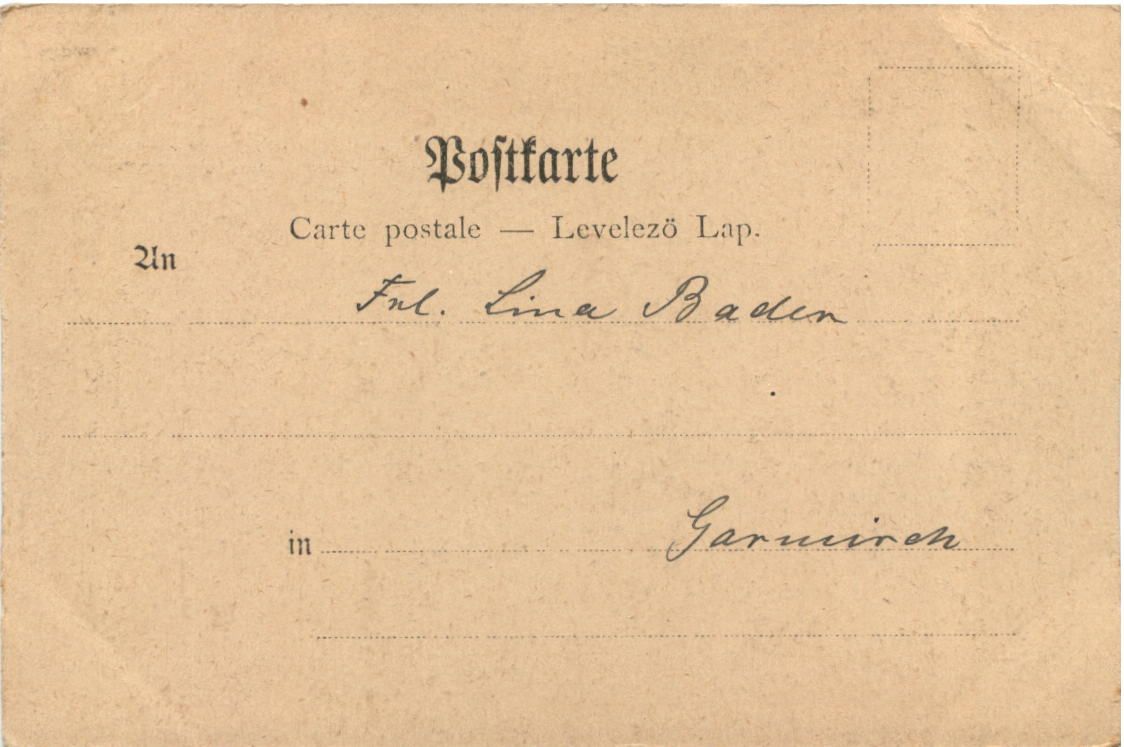 Postkarte
Carte postale — Levelezö Lap.
An
Frl. Lina Bader
in Garmisch